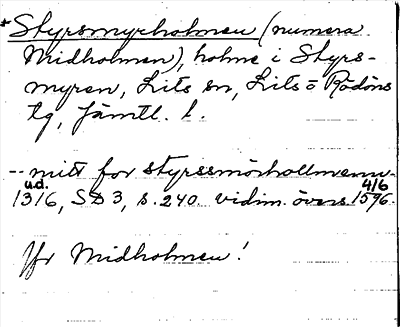 *Styrsmyrholmen (numera
Midholmen), holme i Styrs-
myren, Lits sn, Lits o Rödöns
tg, Jämtl. l.
-- mitt for styrssmörhollmenn --
u.d. 4/6
1316, SD 3, s. 240. vidim. övers. 1596.
Jfr Midholmen!